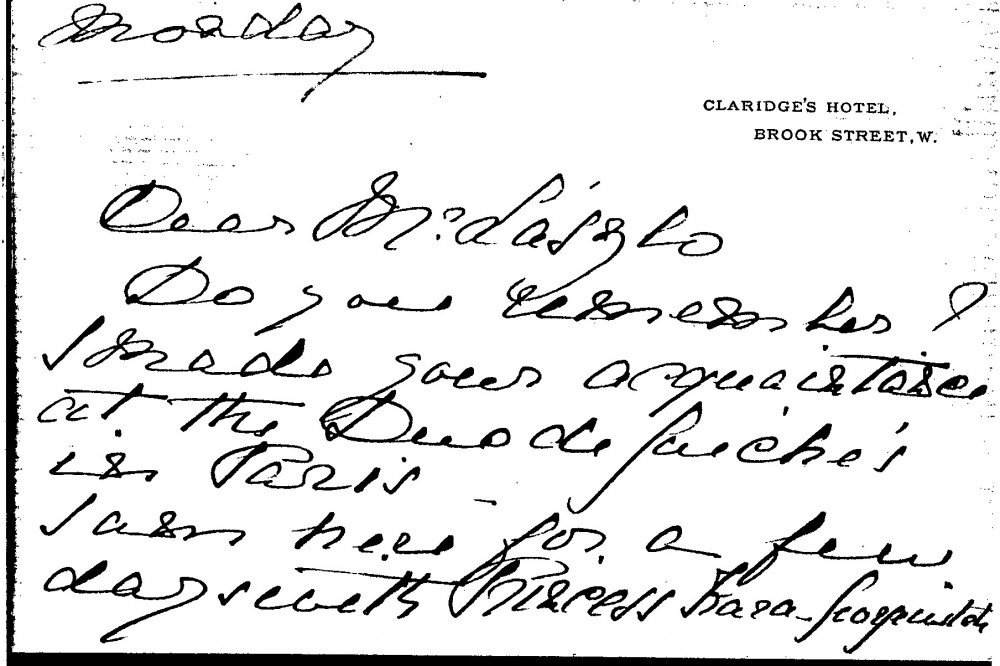 Monday
CLARIDGE'S HOTEL,
BROOK STREET, W.
Dear Mr. László
Do you remember?
I made your acquaintance
at the Duc de Guiche's
in Paris -
I am here for a few
days with Princess Kara-Georgevitch